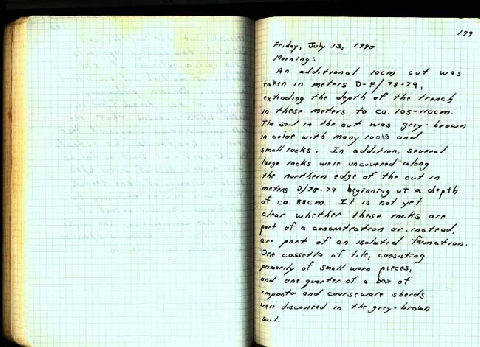 199
Friday, July 13, 1990
Morning:
An additional 10cm cut was
taken in meters D-F/78-79,
extending the depth of the trench
in these meters to ca. 105-110cm.
The soil in the cut was grey-brown
in color with many rocks and
small rocks. In addition, several
large rocks were uncovered along
the northern edge of the cut in
meters D/78-79 beginning at a depth
of ca 88cm. It is not yet
clear whether these rocks are
part of a concentration or instead,
are part of an isolated formation.
One cassetta of tile, consisting
primarily of small worn pieces,
and one quarter of a box of
impasto and courseware sherds
were discovered in the grey-brown
soil.